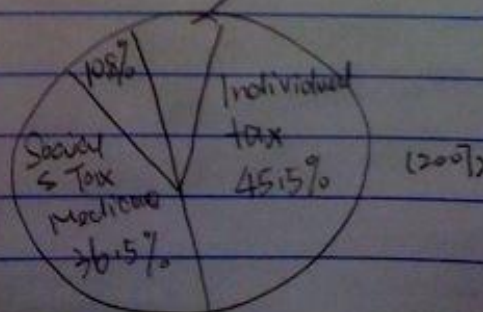 10.8%
Individual
tax
45.5%
Social
& Tax
Medicare
36.5%
(2007)